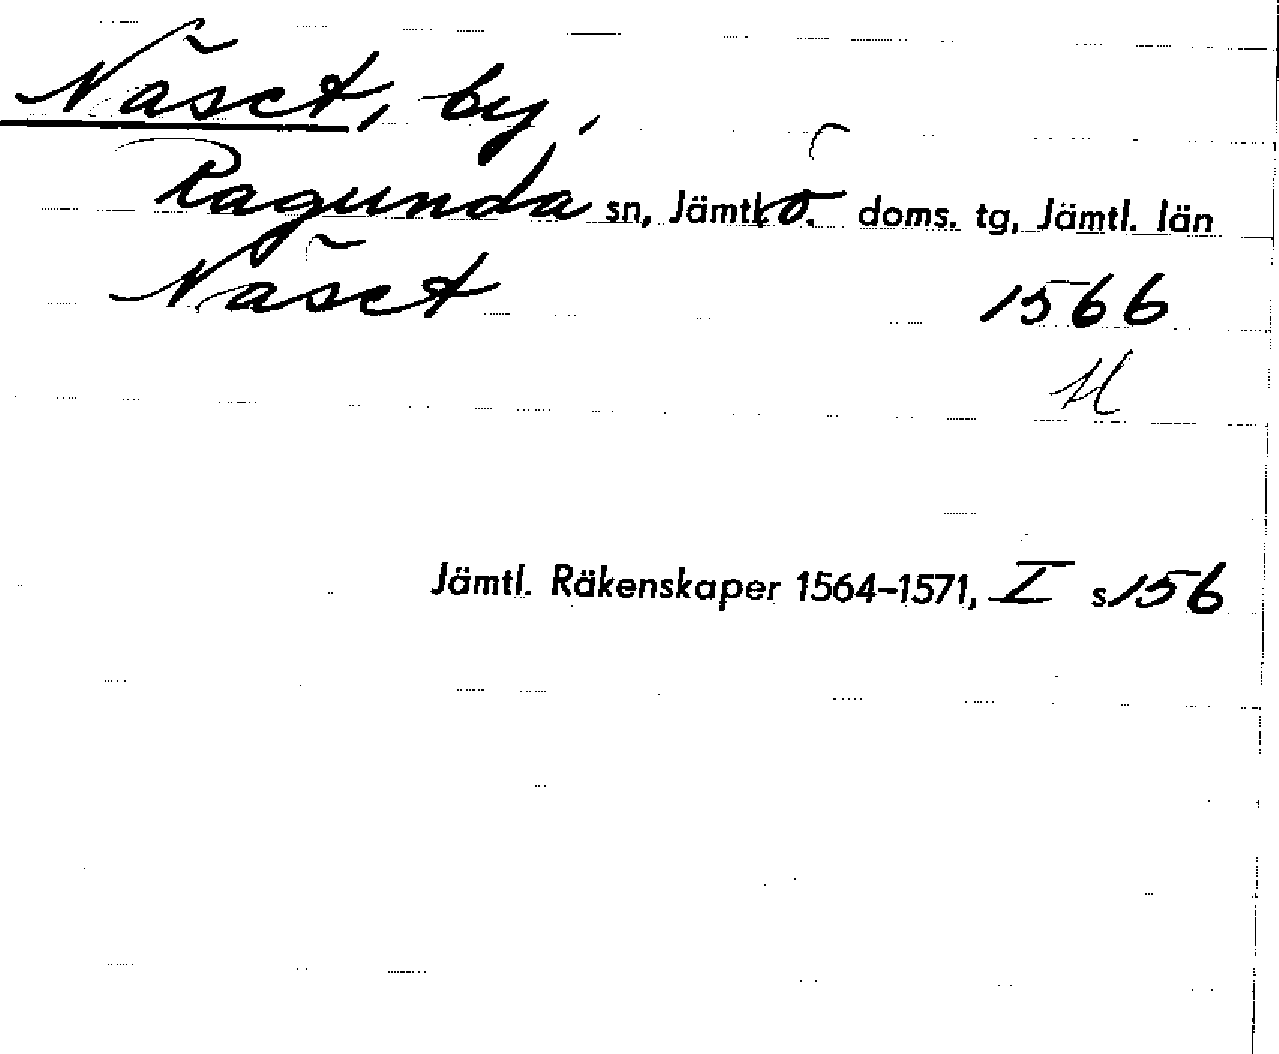 Näset, by,
Ragunda sn, Jämtl. ö. doms. tg, Jämtl. län
Näset 1566
Jämtl. Räkenskaper 1564–1571, I s 156